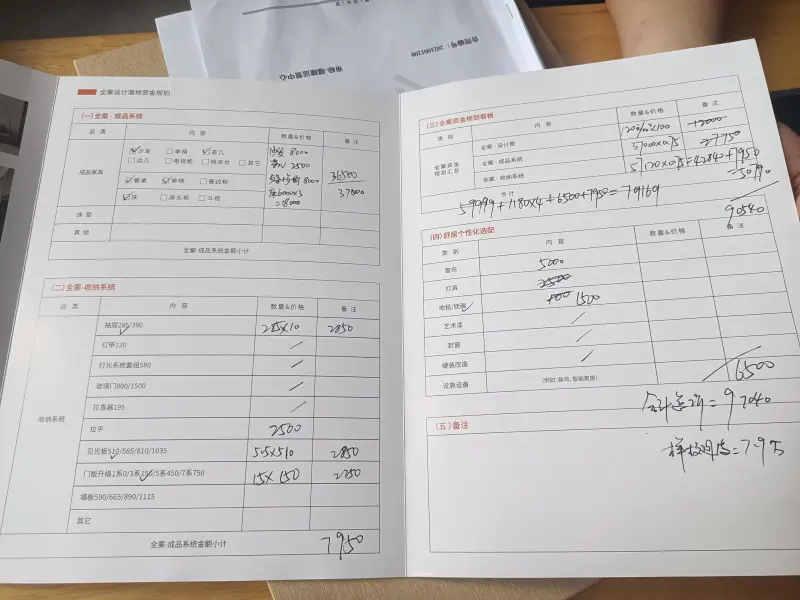 合同编号: 20210801208
全案设计落地资金规划
(一) 全案 - 成品系统
品 类 内 容 数量&价格 备 注
成品家具 沙发 单椅 茶几 8000
边几 电视柜 梳妆台 其它 2500
餐桌 单椅 餐边柜 8000 36500
床 床头柜 斗柜 床6000×3 37500
=18000
床 垫
其 他
全案-成品系统金额小计
(二) 全案-收纳系统
品 类 内 容 数量&价格 备 注
收纳系统
抽屉285/390 285×10 2850
灯带120
灯光系统套组580
玻璃门800/1500
拉直器195
拉手 2500
见光板510/585/810/1035 5.5×510 2850
门板升级1系0/3系150/5系450/7系750 15×150 2250
墙板590/665/890/1115
其它
全案-成品系统金额小计 7950
(三) 全案资金规划看板
类 别 内 容 数量&价格 备 注
全案资金规划汇总
全案 - 设计费 120/m²×100 12000
全案 - 成品系统 37000×0.75 27750
全案 - 收纳系统 57120×0.75=42840+7950
=50790
合计
59999+1180×4+6500+7950=79169
90540
(四) 舒居个性化选配
类 别 内 容 数量&价格 备 注
窗帘 5000
灯具
地毯/挂画 1500
艺术漆
封窗
硬装改造
设施设备 (例如:新风,智能家居) 6500
合计总价=97040
(五) 备注